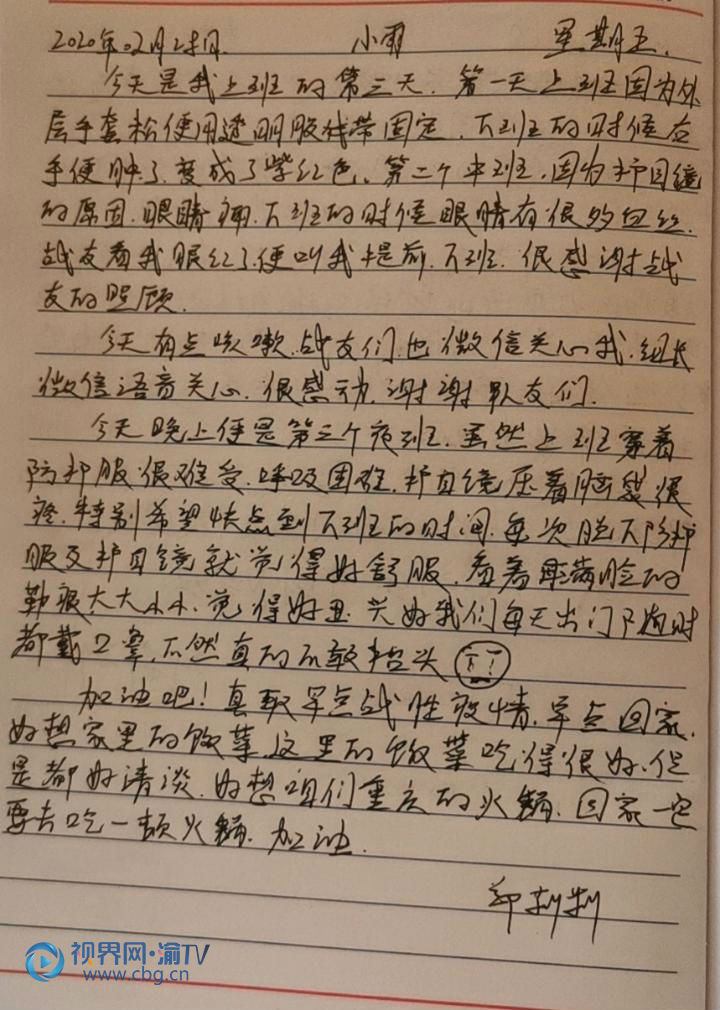 2020年02月28日. 小雨 星期五.
今天是我上班的第三天. 第一天上班因为外
层手套松便用透明胶带固定. 下班的时候右
手便肿了. 变成了紫红色. 第二个中班. 因为护目镜
的原因. 眼睛痛. 下班的时候眼睛有很多血丝.
战友看我眼红了便叫我提前. 下班. 很感谢战
友的照顾.
今天有点咳嗽. 战友们也微信关心我. 组长
微信语音关心. 很感动. 谢谢队友们.
今天晚上便是第三个夜班. 虽然上班穿着
防护服很难受. 呼吸困难. 护目镜压着脑袋很
疼. 特别希望快点到下班的时间. 每次脱下防护
服及护目镜就觉得好舒服. 看着满脸的
勒痕大大小小. 觉得好丑. 关好我们每天出门下夜时
都戴口罩. 不然真的不敢抬头
加油吧! 争取早点战胜疫情. 早点回家.
好想家里的饭菜. 这里的饭菜吃得很好. 但
是都好清淡. 好想咱们重庆的火锅. 回家一定
要去吃一顿火锅. 加油.
郑莉莉
视界网·渝TV
www.cbg.cn